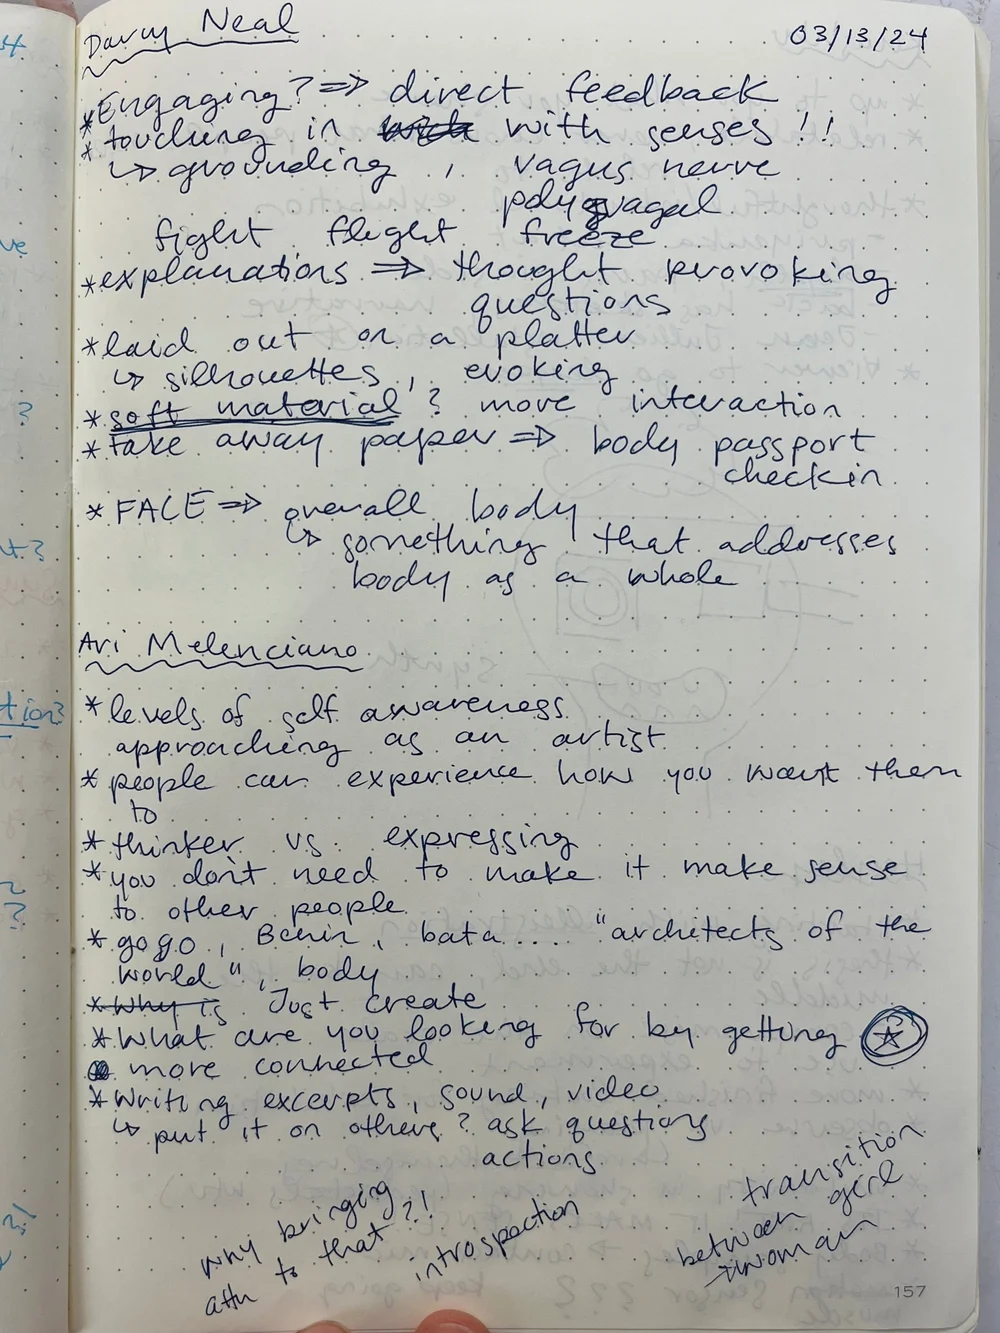 Davy Neal
03/13/24
*Engaging? => direct feedback
*touching in with senses!!
↳ grounding, vagus nerve
polyvagal
fight flight freeze
*explanations => thought provoking
questions
*laid out on a platter
↳ silhouettes, evoking
*soft material? more interaction
*take away paper => body passport
checkin
*FACE => overall body
↳ something that addresses
body as a whole
Ari Melenciano
*levels of self awareness
approaching as an artist
*people can experience how you want them
to
*thinker vs expressing
*you don't need to make it make sense
to other people
*gogo, Benin, bata.... "architects of the
world", body
*Why is Just create
*What are you looking for by getting
more connected
*Writing excerpts, sound, video
↳ put it on others? ask questions
actions
why bringing
attn to that?!
introspection
transition
between girl
→ woman
157